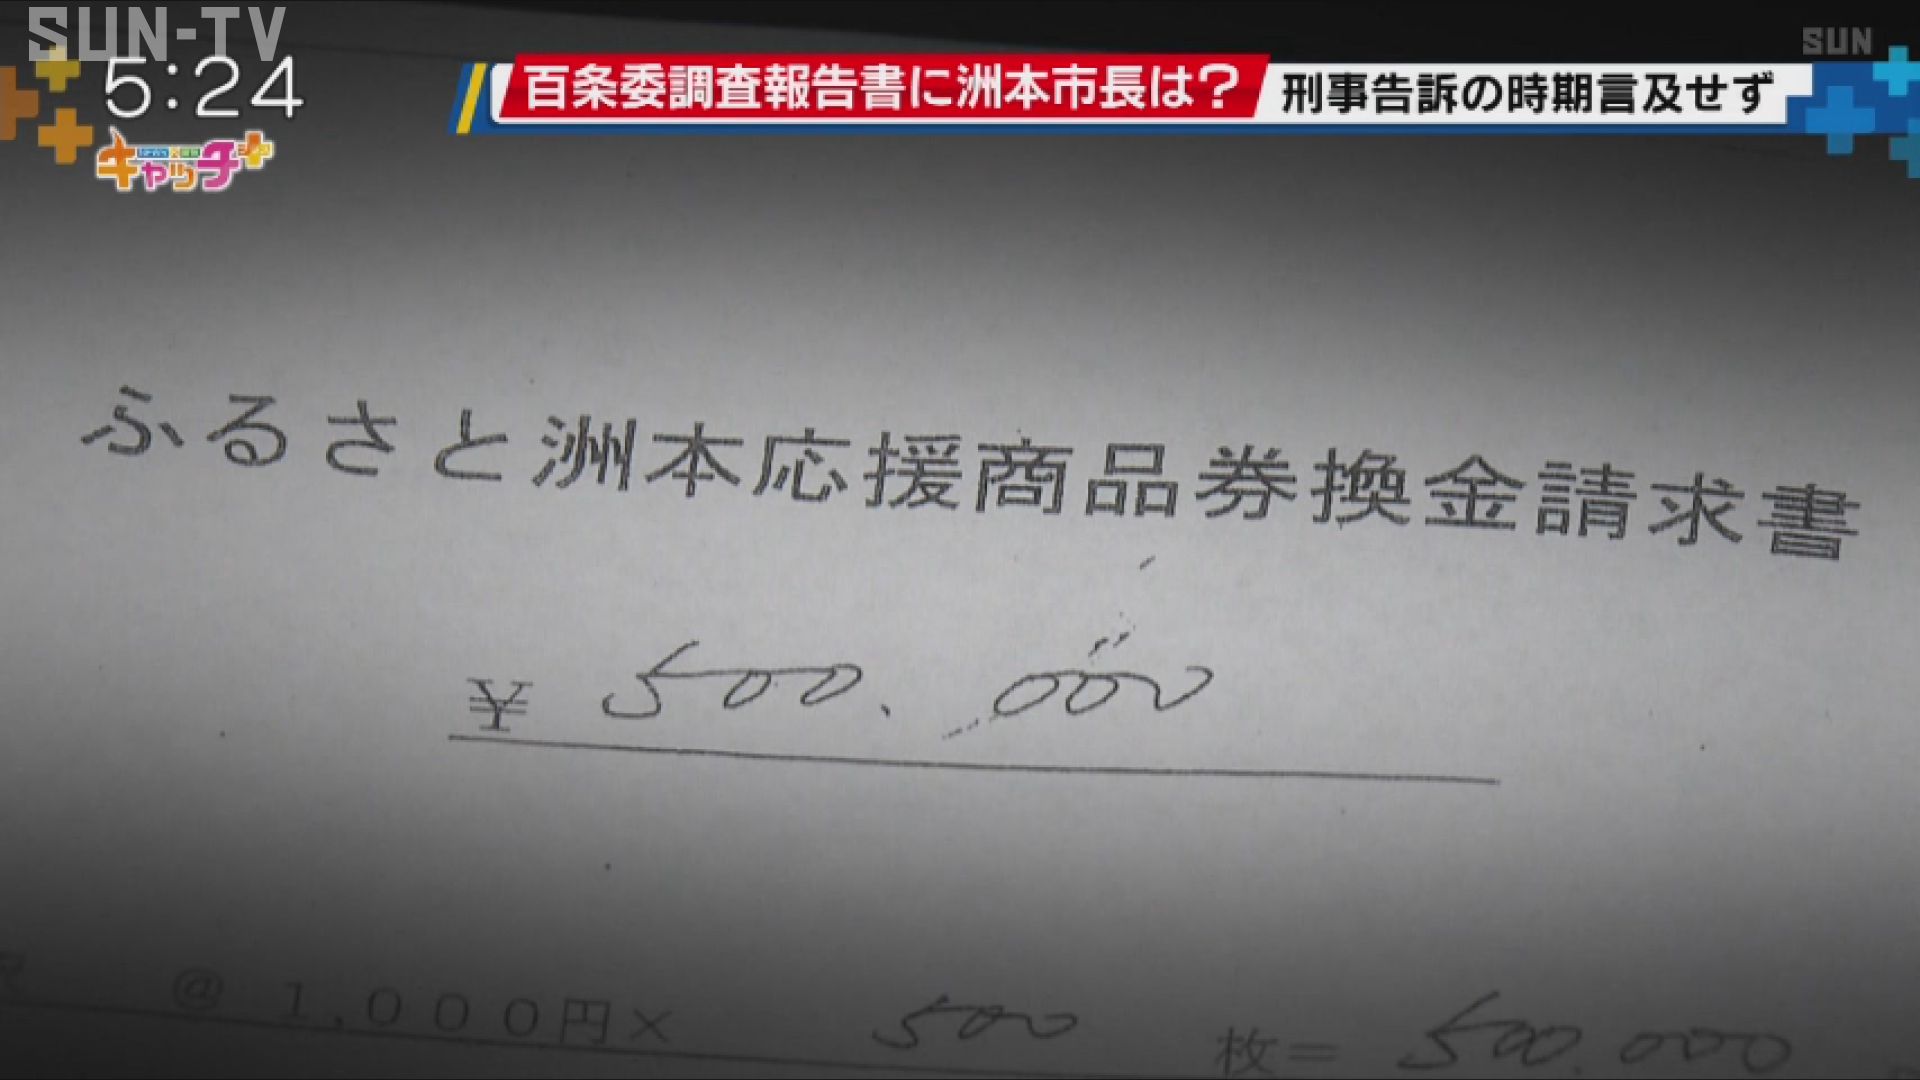 SUN-TV
SUN
5:24
キャッチ+
百条委調査報告書に洲本市長は?
刑事告訴の時期言及せず
ふるさと洲本応援商品券換金請求書
¥ 500.000
@1,000円× 500 枚= 500.000